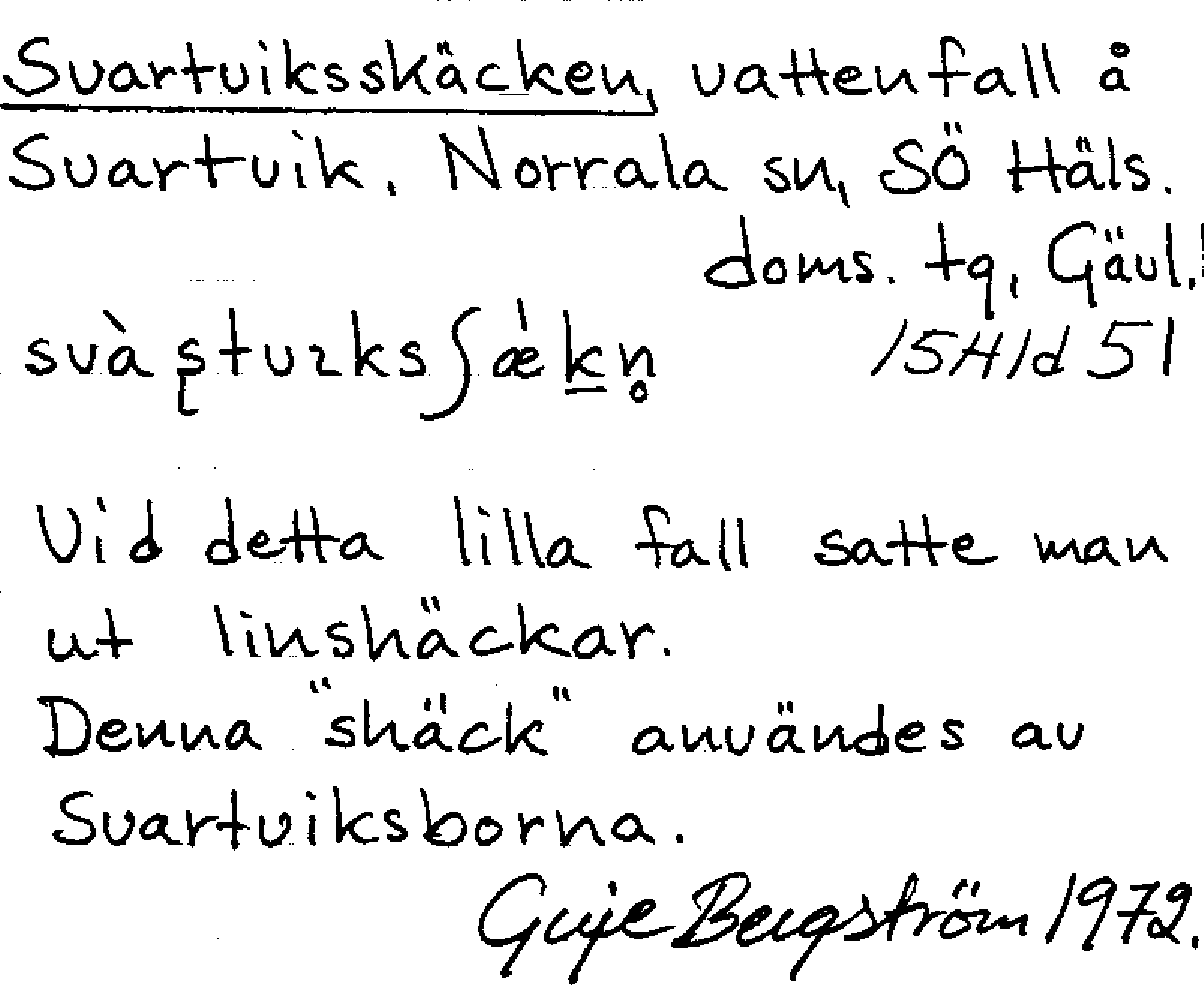 Svartviksskäcken, vattenfall å
Svartvik. Norrala sn, SÖ Häls.
doms. tq, Gävl.
svàʂtvɪksʃǽkn̥
15H1d51
Vid detta lilla fall satte man
ut linshäckar.
Denna "shäck" användes av
Svartviksborna.
Guje Bergström 1972.